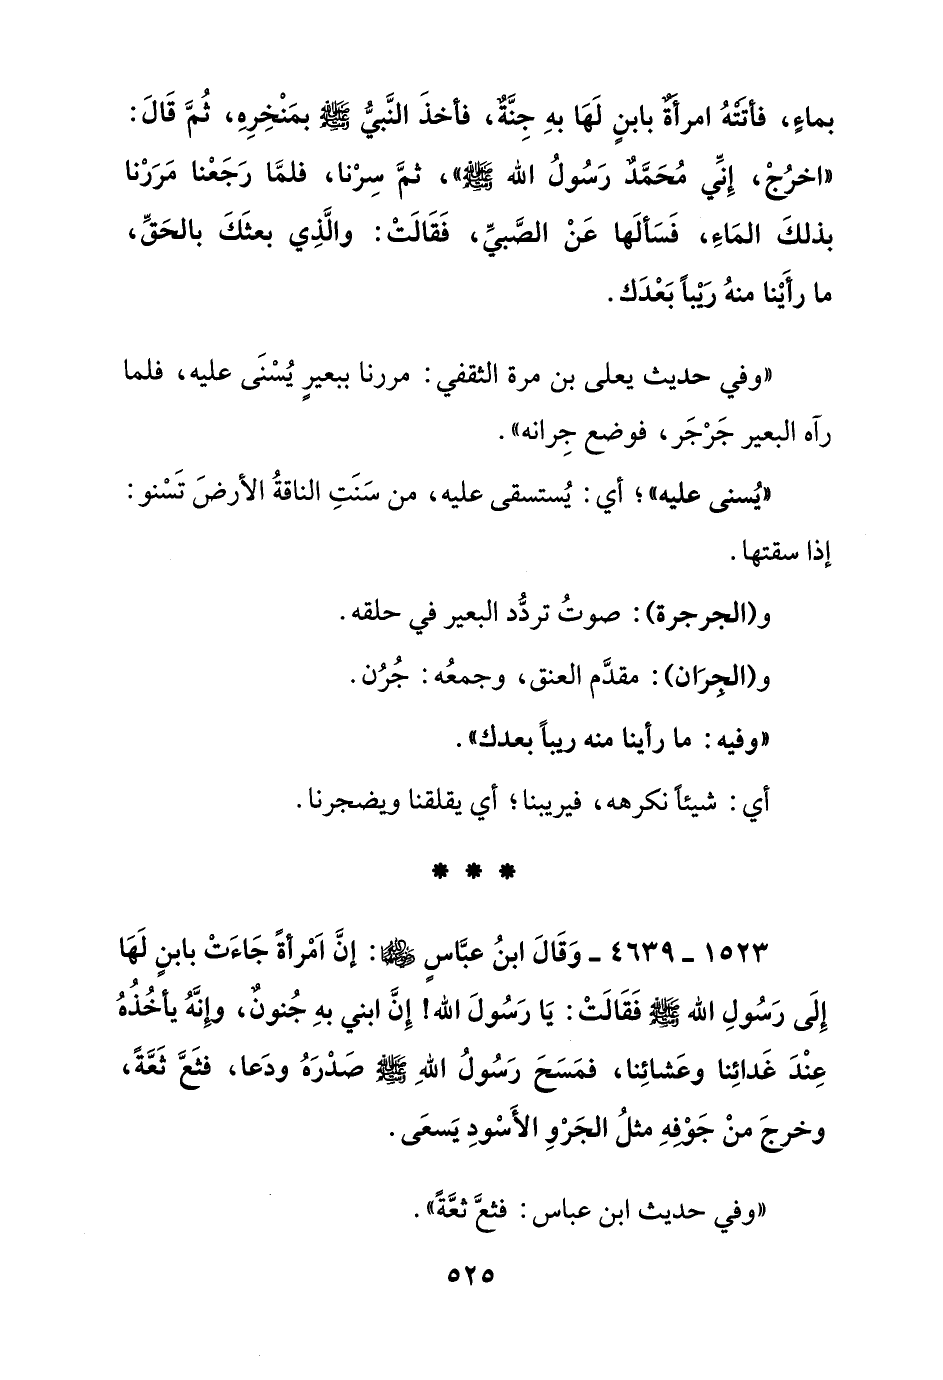 بماءٍ، فأتتْهُ امرأةٌ بابنٍ لَهَا بهِ جِنَّةٌ، فأخذَ النَّبيُّ ﷺ بمَنْخِرِهِ، ثُمَّ قَالَ:
«اخرُجْ، إِنِّي مُحَمَّدٌ رَسُولُ الله ﷺ»، ثمَّ سِرْنا، فلمَّا رَجَعْنا مَرَرْنا
بذلكَ المَاءِ، فَسَألَها عَنْ الصَّبيِّ، فَقَالَتْ: والَّذِي بعثَكَ بالحَقِّ،
ما رأَيْنا منهُ رَيْباً بَعْدَك.
«وفي حديث يعلى بن مرة الثقفي: مررنا ببعيرٍ يُسْنَى عليه، فلما
رآه البعير جَرْجَر، فوضع جِرانه».
«يُسنى عليه»؛ أي: يُستسقى عليه، من سَنَتِ الناقةُ الأرضَ تَسْنو:
إذا سقتها.
و(الجرجرة): صوتُ تردُّد البعير في حلقه.
و(الجِرَان): مقدَّم العنق، وجمعُه: جُرُن.
«وفيه: ما رأينا منه ريباً بعدك».
أي: شيئاً نكرهه، فيريبنا؛ أي يقلقنا ويضجرنا.
* * *
١٥٢٣ - ٤٦٣٩ - وَقَالَ ابنُ عبَّاسٍ ﵁: إنَّ اَمْرأةً جَاءَتْ بابنٍ لَهَا
إلَى رَسُولِ الله ﷺ فَقَالَتْ: يَا رَسُولَ الله! إنَّ ابني بهِ جُنونٌ، وإنَّهُ يأخُذُهُ
عِنْدَ غَدائِنا وعَشائِنا، فمَسَحَ رَسُولُ اللهِ ﷺ صَدْرَهُ ودَعا، فثَعَّ ثَعَّةً،
وخرجَ منْ جَوْفِهِ مثلُ الجَرْوِ الأَسْودِ يَسعَى.
«وفي حديث ابن عباس: فثعَّ ثعَّةً».
٥٢٥